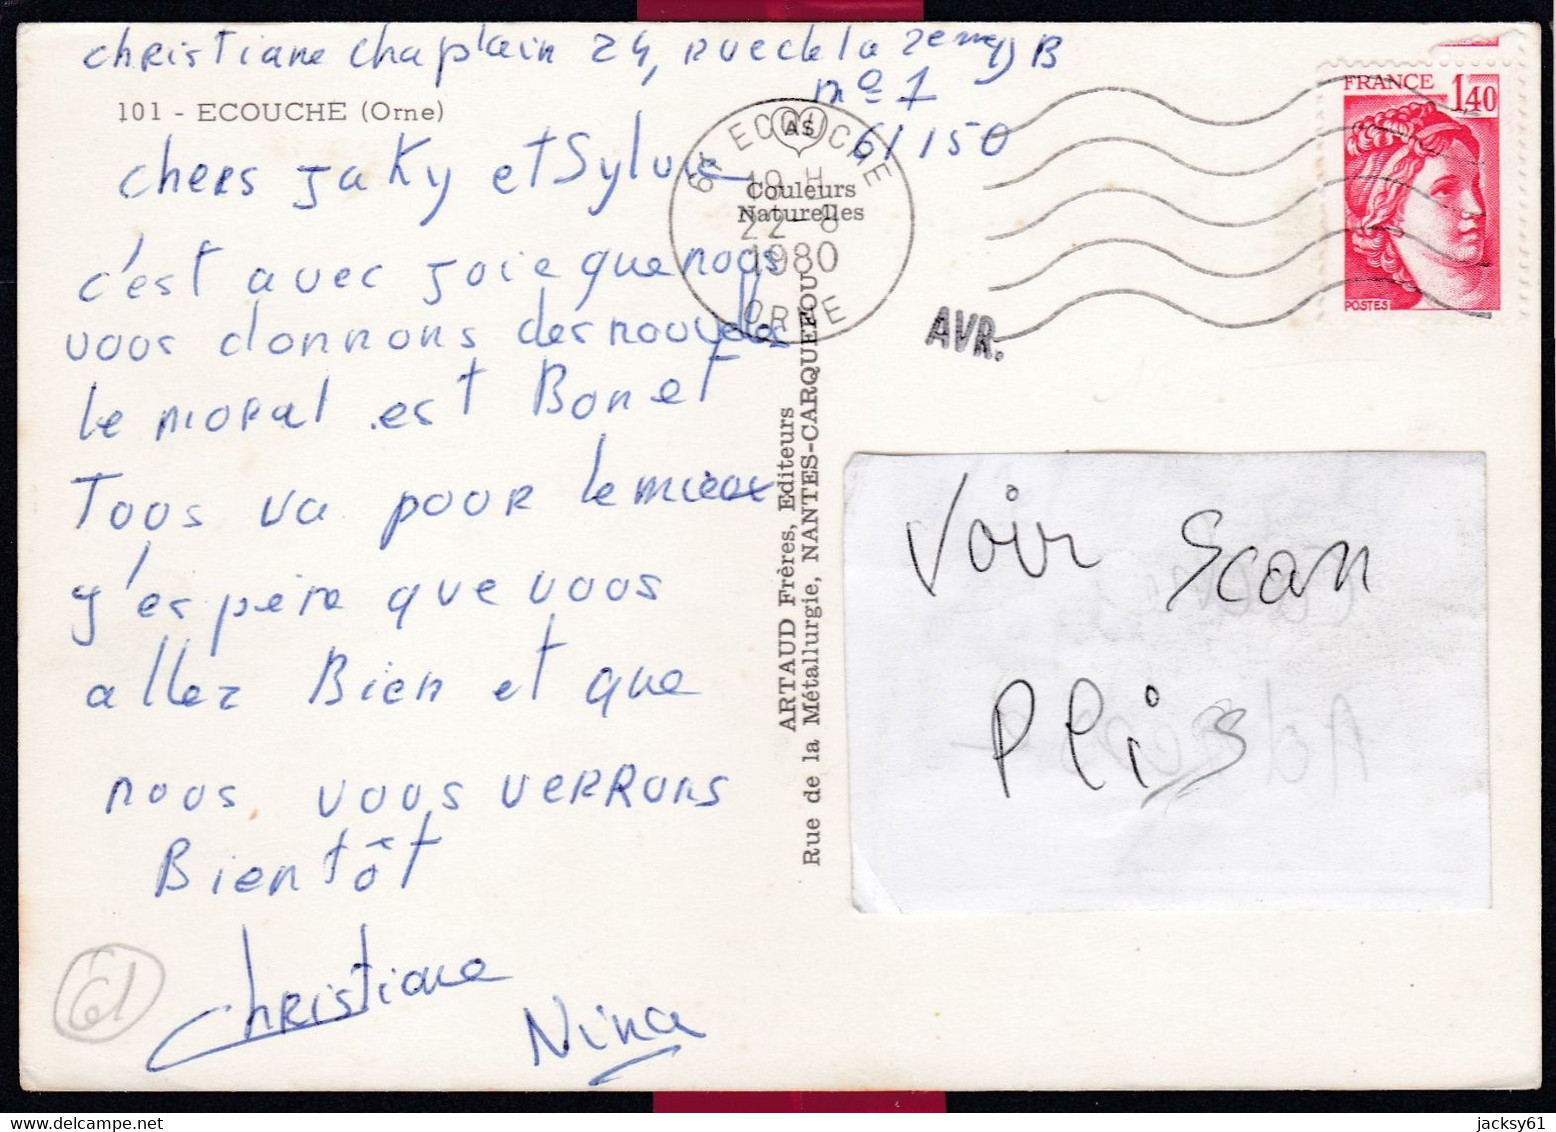 christiane chaplain 24, rue de la 2eme DB
no 1
61150
101 - ECOUCHE (Orne)
chers jaKy et Sylvie
c'est avec joie que nous
vous donnons des nouvelles
le moral est Bon et
Tous va pour le mieux
j'espère que vous
allez Bien et que
nous vous verrons
Bientôt
christiane
Nina
61
61 ECOUCHE
AS
Couleurs
Naturelles
19 H
22-8
1980
ORNE
AVR.
ARTAUD Frères, Editeurs
Rue de la Métallurgie, NANTES-CARQUEFOU
FRANCE
1,40
POSTES
Voir Scan
Plis
jacksy61